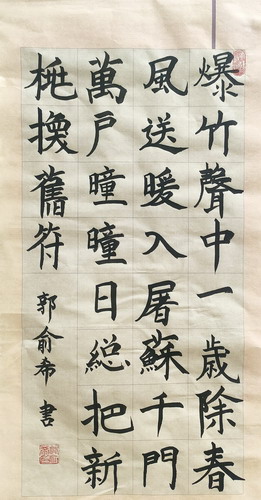 爆竹聲中一歲除春
風送暖入屠蘇千門
萬戶曈曈日總把新
桃換舊符
郭俞希書